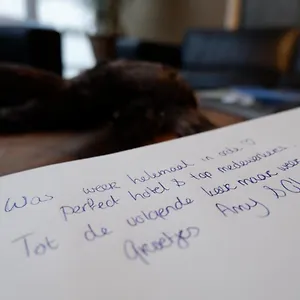 Was weer helemaal in orde ☺
Perfect hotel & top medewerkers.
Tot de volgende keer maar weer
Groetjes Amy &